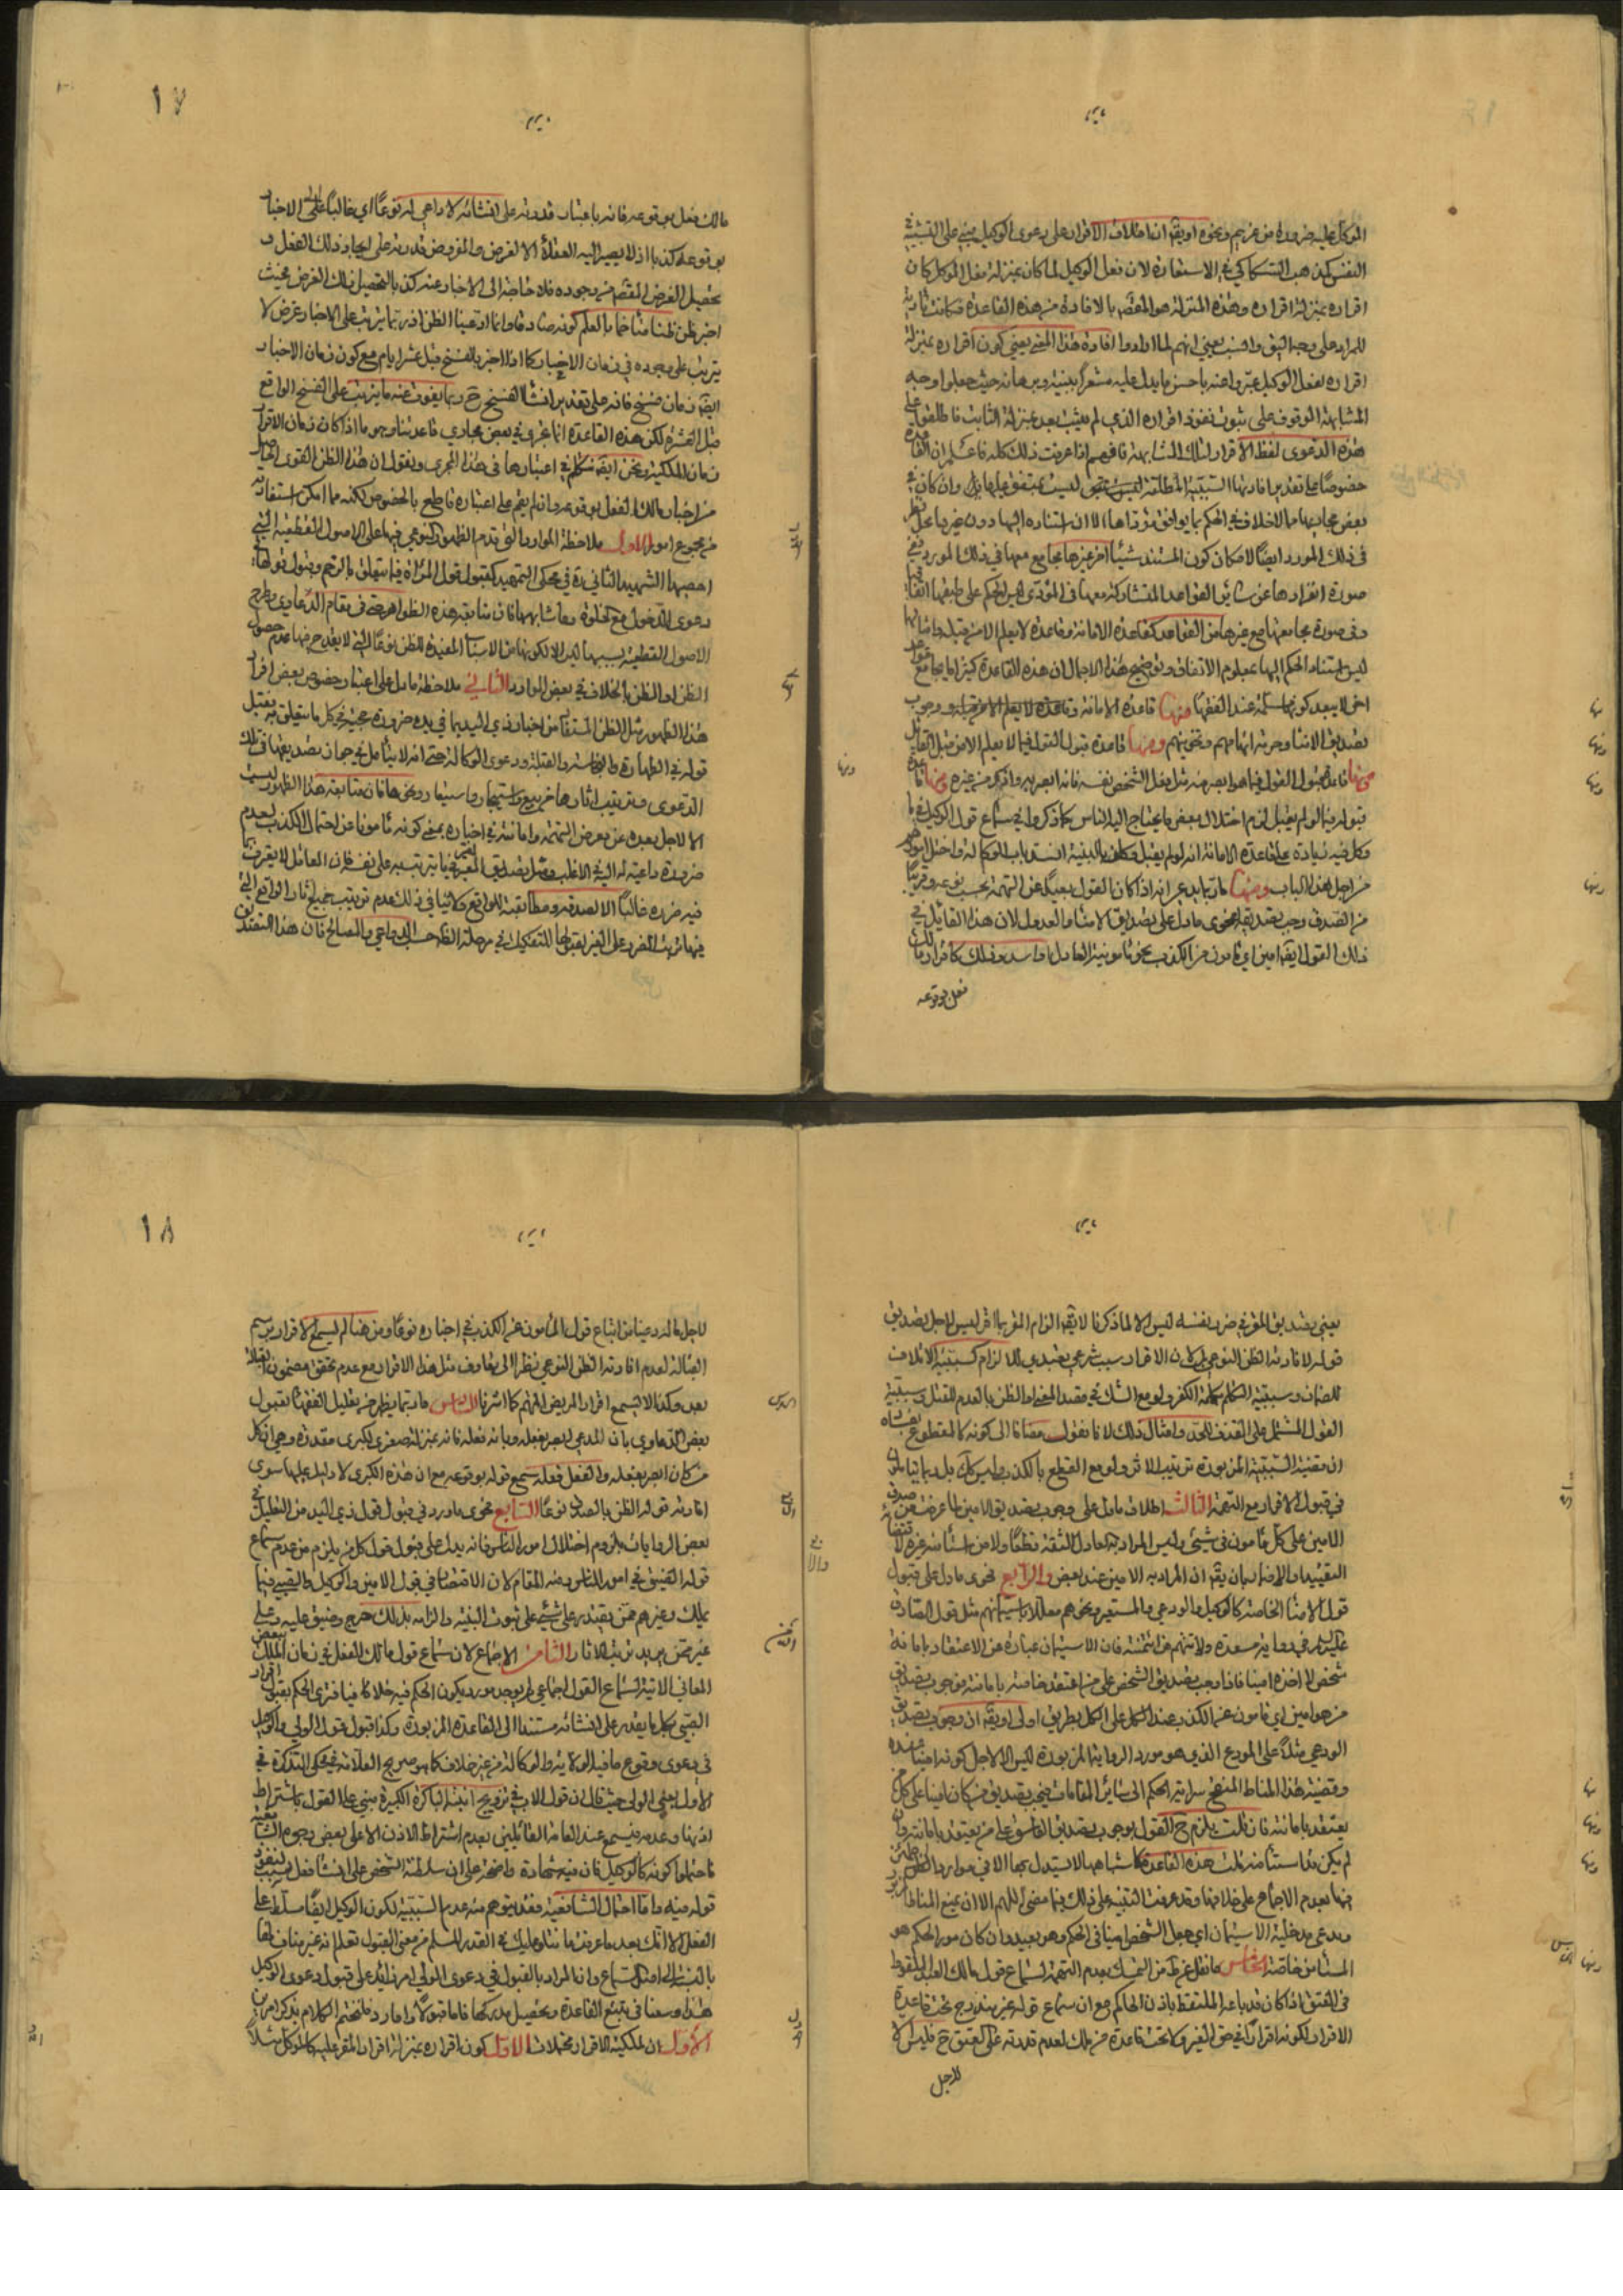 الموكل عليه ضرورة من غريم ونحوه او يقم ان اطلاق الاقرار على دعوى الوكيل مبنى على التشبيه
لان فعل الوكيل لما كان بمنزلة فعل الموكل كان
اقراره بمنزلة اقراره وهذه المنزلة هو المقصم بالافادة من هذه القاعدة فكانت
للمراد على وجه يعنى انهم لما ارادوا افادة هذا المعنى يعنى كون اقراره بمنزلة
اقراره بفعل الوكيل عبروا عنه باحسن ما يدل عليه مشعرا ببينة وبرهانه حيث جعلوا وجه
المشابهة الوقوف على ثبوت نفوذ اقراره الذي لم يثبت بعد بمنزلة الثابت فاطلقوا على
هذه الدعوى لفظ الاقرار لتلك المشابهة فافهم اذا عرفت ذلك كله فاعلم ان القاعدة
خصوصا على تقدير افادتها السببية المطلقة ليست بمتفق عليها بل وان كان في
بعض مجاريها ما لا خلاف في الحكم بما يوافق مؤداها الا ان استناده اليها دون غيرها محل نظر
في ذلك المورد ايضا لامكان كون المستند شيئا اخر غيرها يجامع معها في ذلك المورد ففي
صورة انفرادها عن سائر القواعد المتشاركة معها في المؤدى
وفي صورة مجامعتها مع غيرها من القواعد كقاعدة الامانة وقاعدة لا يعلم الا من قبله وامثالها
ليس استناد الحكم اليها بمعلوم الاتفاق وتوضيح هذا الاجمال ان هذه القاعدة كثيرا ما يجامع قواعد
اخر لا يبعد كونها مسلمة عند الفقهاء منها قاعدة الامانة وقاعدة لا يعلم الا من قبله ووجوب
تصديق الامناء وحرمة اتهامهم وتخوينهم ومنها قاعدة قبول القول فيما لا يعلم الا من قبل القائل
ومنها قاعدة قبول القول فيما هو ابصر به من مثل فعل الشخص نفسه فانه ابصر به واذكر من غيره ومنها قاعدة
قبوله فيما لو لم يقبل لزم اختلال بعض ما يحتاج اليه الناس كما ذكروا في سماع قول الوكيل في ما
وكل فيه زيادة على قاعدة الامانة انه لو لم يقبل وكلف بالبينة انسد باب الوكالة واختل امور
من اجل هذا الباب ومنها ما ربما يدعى انه اذا كان القول بعيدا عن التهمة بحسب نوعه وقريبا
من الصدق وجب تصديقه بفحوى ما دل على تصديق الامناء والعدول لان هذا القائل في
ذلك القول ايقم امين اي مأمون من الكذب نحو مأمونية العادل وذلك كاقرار مالك
فعل بوقوعه
١٧
مالك فعل بوقوعه فانه باعتبار قدرته على انشائه لا داعي له نوعا اي غالبا على الاخبار
بوقوعه كذبا اذ لا يصير اليه العقلاء الا لغرض والمفروض قدرته على ايجاد ذلك الفعل و
تحصيل الغرض المقصم من وجوده فلا حاجة الى الاخبار عنه كذبا لتحصيل ذلك الغرض فحيث
اخبر نظن ظنا متاخما بالعلم كونه صادقا وانما ادعينا الظن اذ ربما يترتب على الاخبار غرض لا
يترتب على وجوده في زمان الاخبار كما اذا اخبر بالفسخ قبل عشر ايام مع كون زمان الاخبار
ايقم زمان فسخ فانه على تقدير انشاء الفسخ ح ربما يفوت عنه ما يترتب على الفسخ الواقع
قبل العشرة لكن هذه القاعدة انما تجرى في بعض مجاري قاعدتنا وهو ما اذا كان زمان الاقرار
زمان الملكية ونحن ايقم نتكلم في اعتبارها في هذا المجرى ونقول ان هذا الظن القوى الحاصل
من اخبار مالك الفعل بوقوعه وان لم يقم على اعتباره قاطع بالخصوص لكنه مما امكن استفادته
من مجموع امور الاول ملاحظة الموارد التي تقدم الظهور النوعي فيها على الاصول القطعية التي
احصيها الشهيد الثاني ره في محكى التمهيد كقبول قول المرأة فيما يتعلق بالرحم وقبول قولها في
دعوى الدخول مع الخلوة وما شابههما فان متابعة هذه الظواهر في مقام الدعاوى وطرح
الاصول القطعية بسببها ليس الا لكونها من الاسباب المفيدة للظن نوعا التي لا يقدح فيها عدم حصول
الظن او الظن بالخلاف في بعض الموارد الثاني ملاحظة ما دل على اعتبار خصوص بعض افراد
هذا الظهور مثل الظن المستفاد من اخبار ذي اليد بما في يده ضرورة حجيته في كل ما يتعلق به فيقبل
قوله في الطهارة والنجاسة والقبلة ودعوى الوكالة حتى انه لا يتأمل في جواز تصديقها في تلك
الدعوى وترتيب اثارها من بيع واستيجار واستيفاء ونحوها فان متابعة هذا الظهور ليست
الا لاجل بعده عن معرض التهمة وامانته في اخباره بمعنى كونه مأمونا عن احتمال الكذب لعدم
ضرورة داعية له اليه في الاغلب ومثل تصديق المقر فيما يترتب به على نفسه فان العاقل لا يقر بما
فيه ضرره غالبا الا لصدقه ومطابقته للواقع ولا ينافي ذلك عدم ترتيب جميع اثار الواقع التي
فيها اثبات الضرر على الغير لقبولها للتفكيك في مرحلة الظاهر حسب الدواعي والمصالح فان هذا التفكيك
يعنى تصديق المقر في ضرر نفسه ليس الا لما ذكرنا لا يقم الزام المقر بالاقرار ليس لاجل تصديق
قوله لافادته الظن النوعي بل لان الاقرار سبب شرعي تعبدي للالزام كسببية الاتلاف
للضمان وسببية التكلم بكلمة الكفر ولو مع الشك في مقصد المخبر او الظن بالعدم للقتل وسببية
القول المشتمل على القذف للحد وامثال ذلك لانا نقول مضافا الى كونه كالمقطوع بفساده
ان مقتضية السببية المزبورة ترتيب الاثر ولو مع القطع بالكذب وليس كك بل ربما
في قبول الاقرار مع التهمة الثالث اطلاق ما دل على وجوب تصديق الامين لما عرفت من صدق
الامين على كل مأمون في شئ وليس المراد به العادل الثقة قطعا
التقييد والاضافة بان يقم ان المراد به الامين عند بعض والرابع فحوى ما دل على قبول
قول الامناء الخاصة كالوكيل والودعي والمستعير ونحوهم معللا باستيمانهم مثل قول الصادق
عليه السلام في رواية مسعدة ولا تتهم من ائتمنته فان الاستيمان عبارة عن الاعتقاد بامانة
شخص لا اخذه امينا فاذا وجب تصديق الشخص على من اعتقد خاصة بامانته فوجوب تصديق
من هو امين اي مأمون عن الكذب عند الكل على الكل بطريق اولى او يقم ان وجوب تصديق
الودعي مثلا على المودع الذي هو مورد الرواية المزبورة ليس الا لاجل كونه امينا عنده
وقضية هذا المناط المنقح سراية الحكم الى سائر المقامات فيجب تصديق من كان امينا على كل من
يعتقد بامانته فان قلت يلزم ح القول بوجوب تصديق الفاسق على من يعتقد بامانته وان
لم يكن مستأمنا قلت هذه القاعدة كاشباهها لا يستدل بها الا في موارد لم
فيها بعدم الاجماع على خلافها وقد عرفت التنبيه على ذلك فيما مضى اللهم الا ان يمنع المناط المزبور
ويدعى مدخلية الاستيمان اي جعل الشخص امينا في الحكم وهو بعيد وان كان مورد الحكم هو
المستأمن خاصة الخامس ما نقل عن ط من التمسك بعدم التهمة لسماع قول مالك العبد الملتقط
في العتق اذا كان قد باعه الملتقط باذن الحاكم مع ان سماع قوله غير مندرج تحت قاعدة
الاقرار لكونه اقرارا في حق الغير ولا تحت قاعدة من ملك لعدم قدرته على العتق ح فليس الا
لاجل
١٨
لاجل ما له دعينا من اتباع قول المأمون عن الكذب في اخباره نوعا ومن هنا لم يسمع الاقرار برسم
القبالة لعدم افادته الظن النوعي نظرا الى تعارف مثل هذا الاقرار مع عدم تحقق مضمون القبالة
بعد وكذا لا يسمع اقرار المريض المتهم كما اشرنا السادس ما ربما يظهر من تعليل الفقهاء لقبول
بعض الدعاوى بان المدعي ابصر بفعله وبانه فعله فانه بمنزلة صغرى لكبرى مقدرة وهي ان كل
من كان ابصر بفعله والفعل فعله سمع قوله بوقوعه مع ان هذه الكبرى لا دليل عليها سوى
افادته قوله الظن بالصدق نوعا السابع فحوى ما ورد في قبول قول ذي اليد من التعليل في
بعض الروايات بلزوم اختلال امور الناس فانه يدل على قبول قول كل من يلزم من عدم سماع
قوله الضيق في امور الناس ومنه المقام لان الاقتصار في قبول الامين والوكيل والصبي فيما
يملك وغيرهم ممن يقتدر على شئ على ثبوت البينة والزامه بذلك حرج وضيق عليه وعلى
غيره ممن يريد ترتيب الاثار الثامن الاجماع لان سماع قول مالك الفعل في زمان الملك ببعض
المعاني الاتية لسماع القول اجماعي لم يوجد مورد يكون الحكم فيه خلافا فيما فترى الحكم بقبول اقرار
الصبي بكل ما يقدر على انشائه مستندا الى القاعدة المزبورة وكذا قبول قول الولي والوكيل
في دعوى وقوع ما فيه الولاية والوكالة من غير خلاف كما هو صريح العلامة في محكى التذكرة في
الاول يعني الولي حيث قال ان قول الاب في تزويج ابنته الباكرة الكبيرة مبني على القول باشتراط
اذنها وعدمه فيسمع عند العامة القائلين بعدم اشتراط الاذن الا على بعض وجوه الشافعية
فاحتملوا كونه كالوكيل فان فيه شهادة واضحة على ان سلطنة الشخص على انشاء فعل سبب لنفوذ
قوله فيه واما احتمال الشافعية فقد يتوهم منه عدم السببية لكون الوكيل ايضا مسلطا على
الفعل الا انك بعد ما عرفت ما تلوناه عليك في القدر المسلم من معنى القبول تعلم انه غير مناف لها
بالنسبة الى اصل السماع وانما المراد بالقبول في دعوى الولي امر زائد على قبول دعوى الوكيل
هذا وسعنا في تتبع القاعدة وتحصيل مدركها فاما قبولا واما ردا فلنختم الكلام بذكر امرين
الاول ان لملكية الاقرار محتملات الاول كون اقراره بمنزلة اقرار المقر عليه كالموكل مثلا